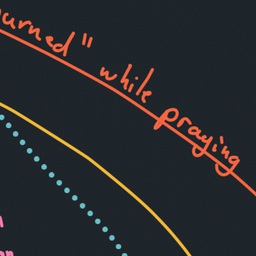 urned" while praying